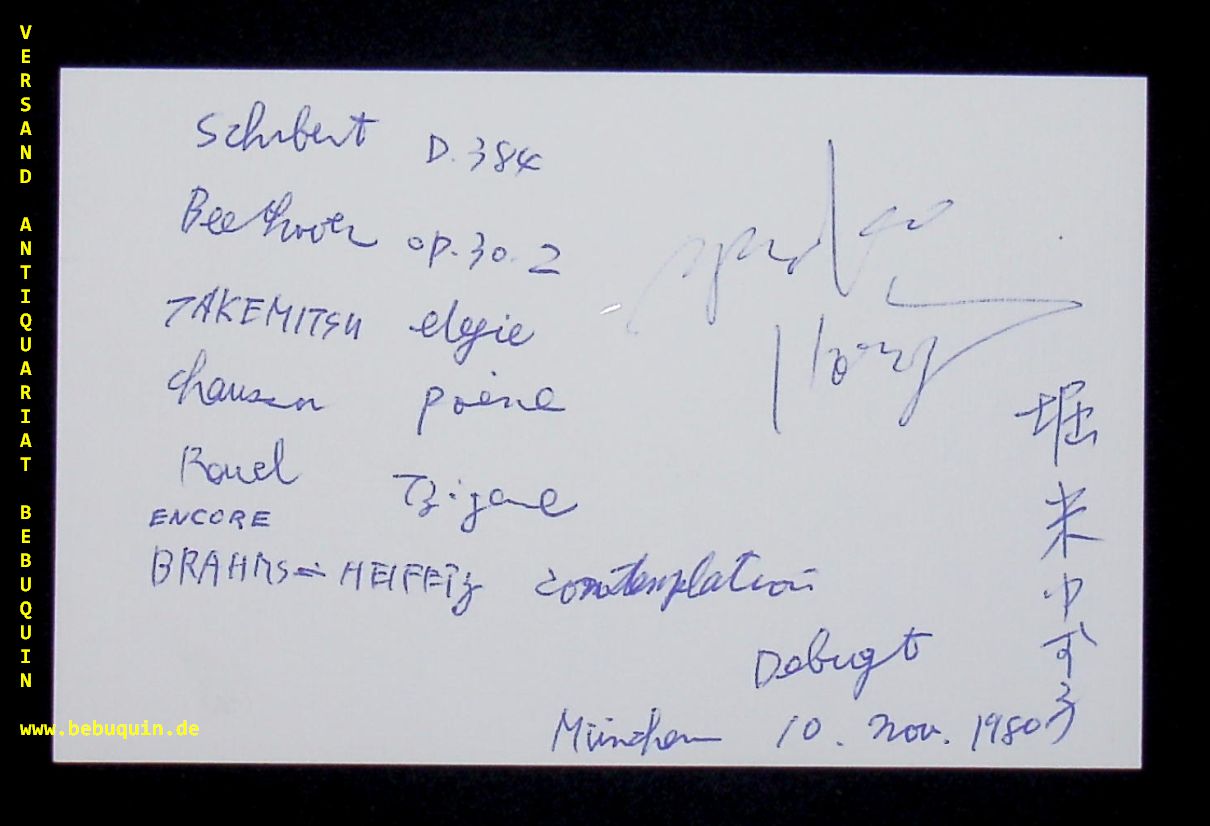 VERSAND ANTIQUARIAT BEBUQUIN
www.bebuquin.de
Schubert D.384
Beethoven op.30.2
TAKEMITSU elegie
Chausson poème
Ravel Tzigane
ENCORE
BRAHMS = HEIFETZ contemplation
Debugt
München 10. Nov. 1980
堀米ゆず子